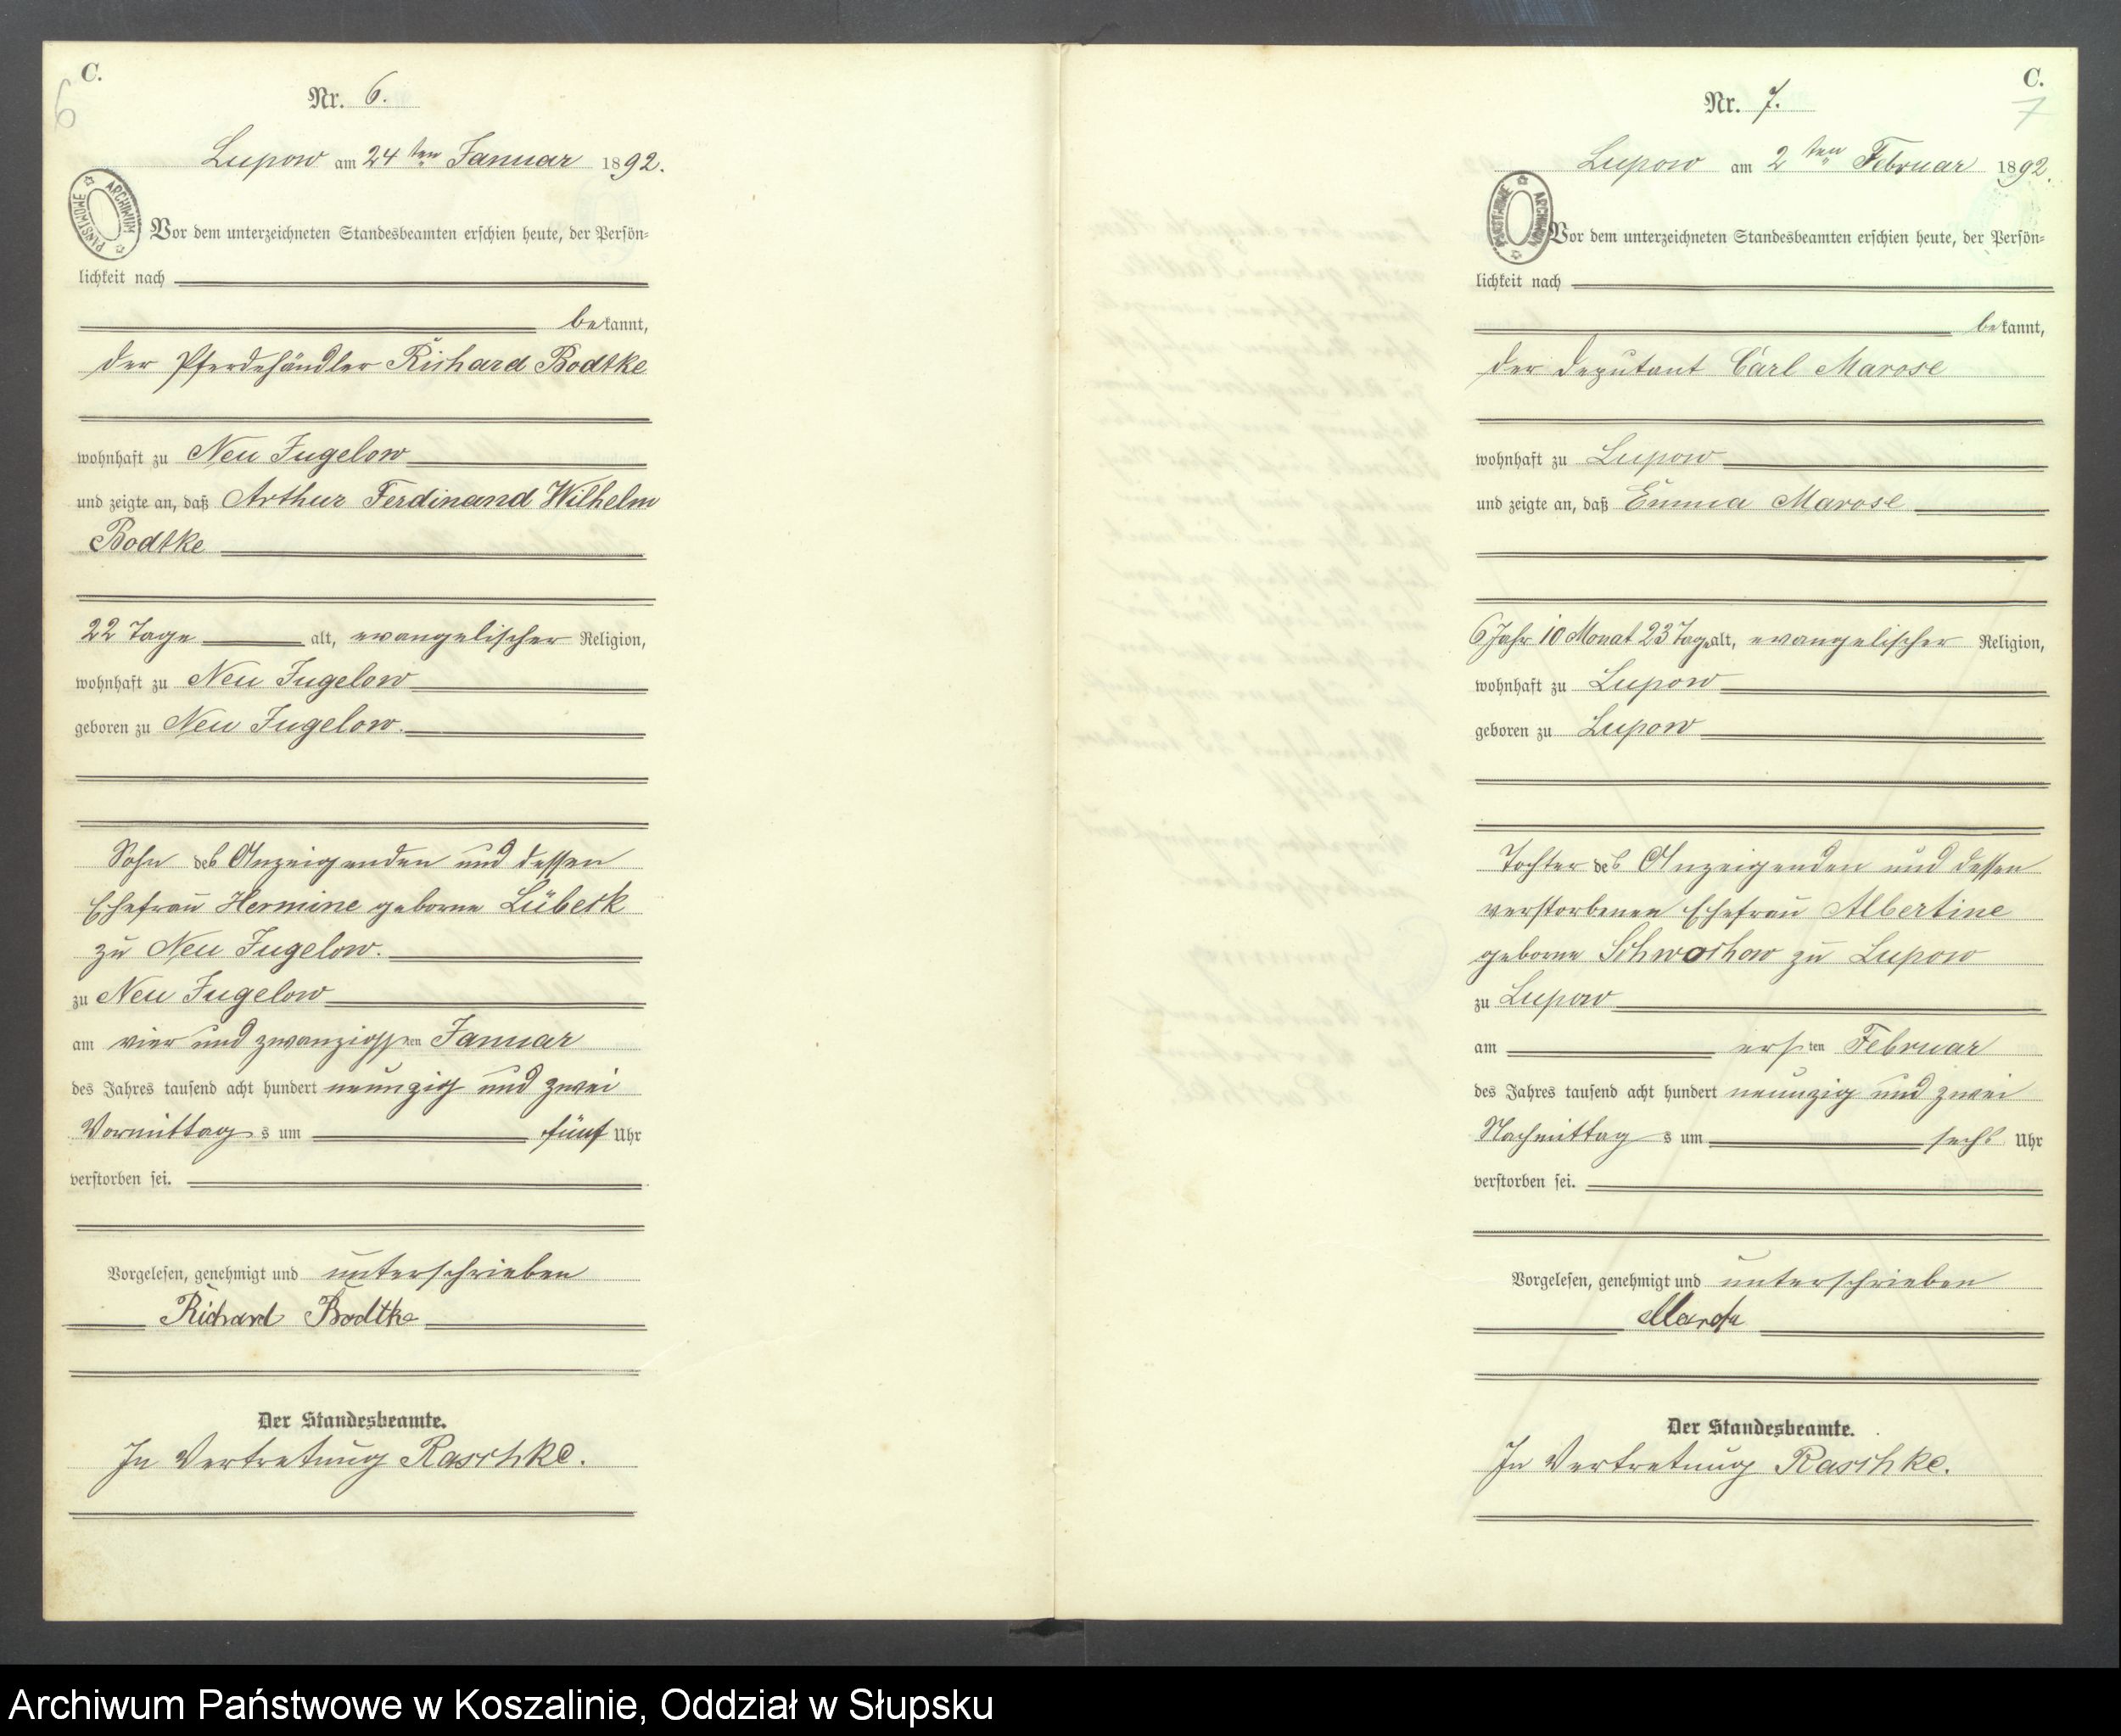 C.
6
Nr. 6.
Lupow am 24ten Januar 1892.
ARCHIWUM PAŃSTWOWE
Vor dem unterzeichneten Standesbeamten erschien heute, der Persön=
lichkeit nach
bekannt,
der Pferdehändler Richard Bodtke
wohnhaft zu Neu Jugelow
und zeigte an, daß Arthur Ferdinand Wilhelm
Bodtke
22 Tage alt, evangelischer Religion,
wohnhaft zu Neu Jugelow
geboren zu Neu Jugelow.
Sohn des Anzeigenden und dessen
Ehefrau Hermine geborne Lübeck
zu Neu Jugelow.
zu Neu Jugelow
am vier und zwanzigsten Januar
des Jahres tausend acht hundert neunzig und zwei
Vormittags um fünf Uhr
verstorben sei.
Vorgelesen, genehmigt und unterschrieben
Richard Bodtke
Der Standesbeamte.
In Vertretung Raschke.
C.
7
Nr. 7.
Lupow am 2ten Februar 1892.
ARCHIWUM PAŃSTWOWE
Vor dem unterzeichneten Standesbeamten erschien heute, der Persön=
lichkeit nach
bekannt,
der Deputant Carl Marose
wohnhaft zu Lupow
und zeigte an, daß Emma Marose
6 Jahr 10 Monat 23 Tage alt, evangelischer Religion,
wohnhaft zu Lupow
geboren zu Lupow
Tochter des Anzeigenden und dessen
verstorbenen Ehefrau Albertine
geborne Schwochow zu Lupow
zu Lupow
am ersten Februar
des Jahres tausend acht hundert neunzig und zwei
Nachmittags um sechs Uhr
verstorben sei.
Vorgelesen, genehmigt und unterschrieben
Der Standesbeamte.
In Vertretung Raschke.
Archiwum Państwowe w Koszalinie, Oddział w Słupsku